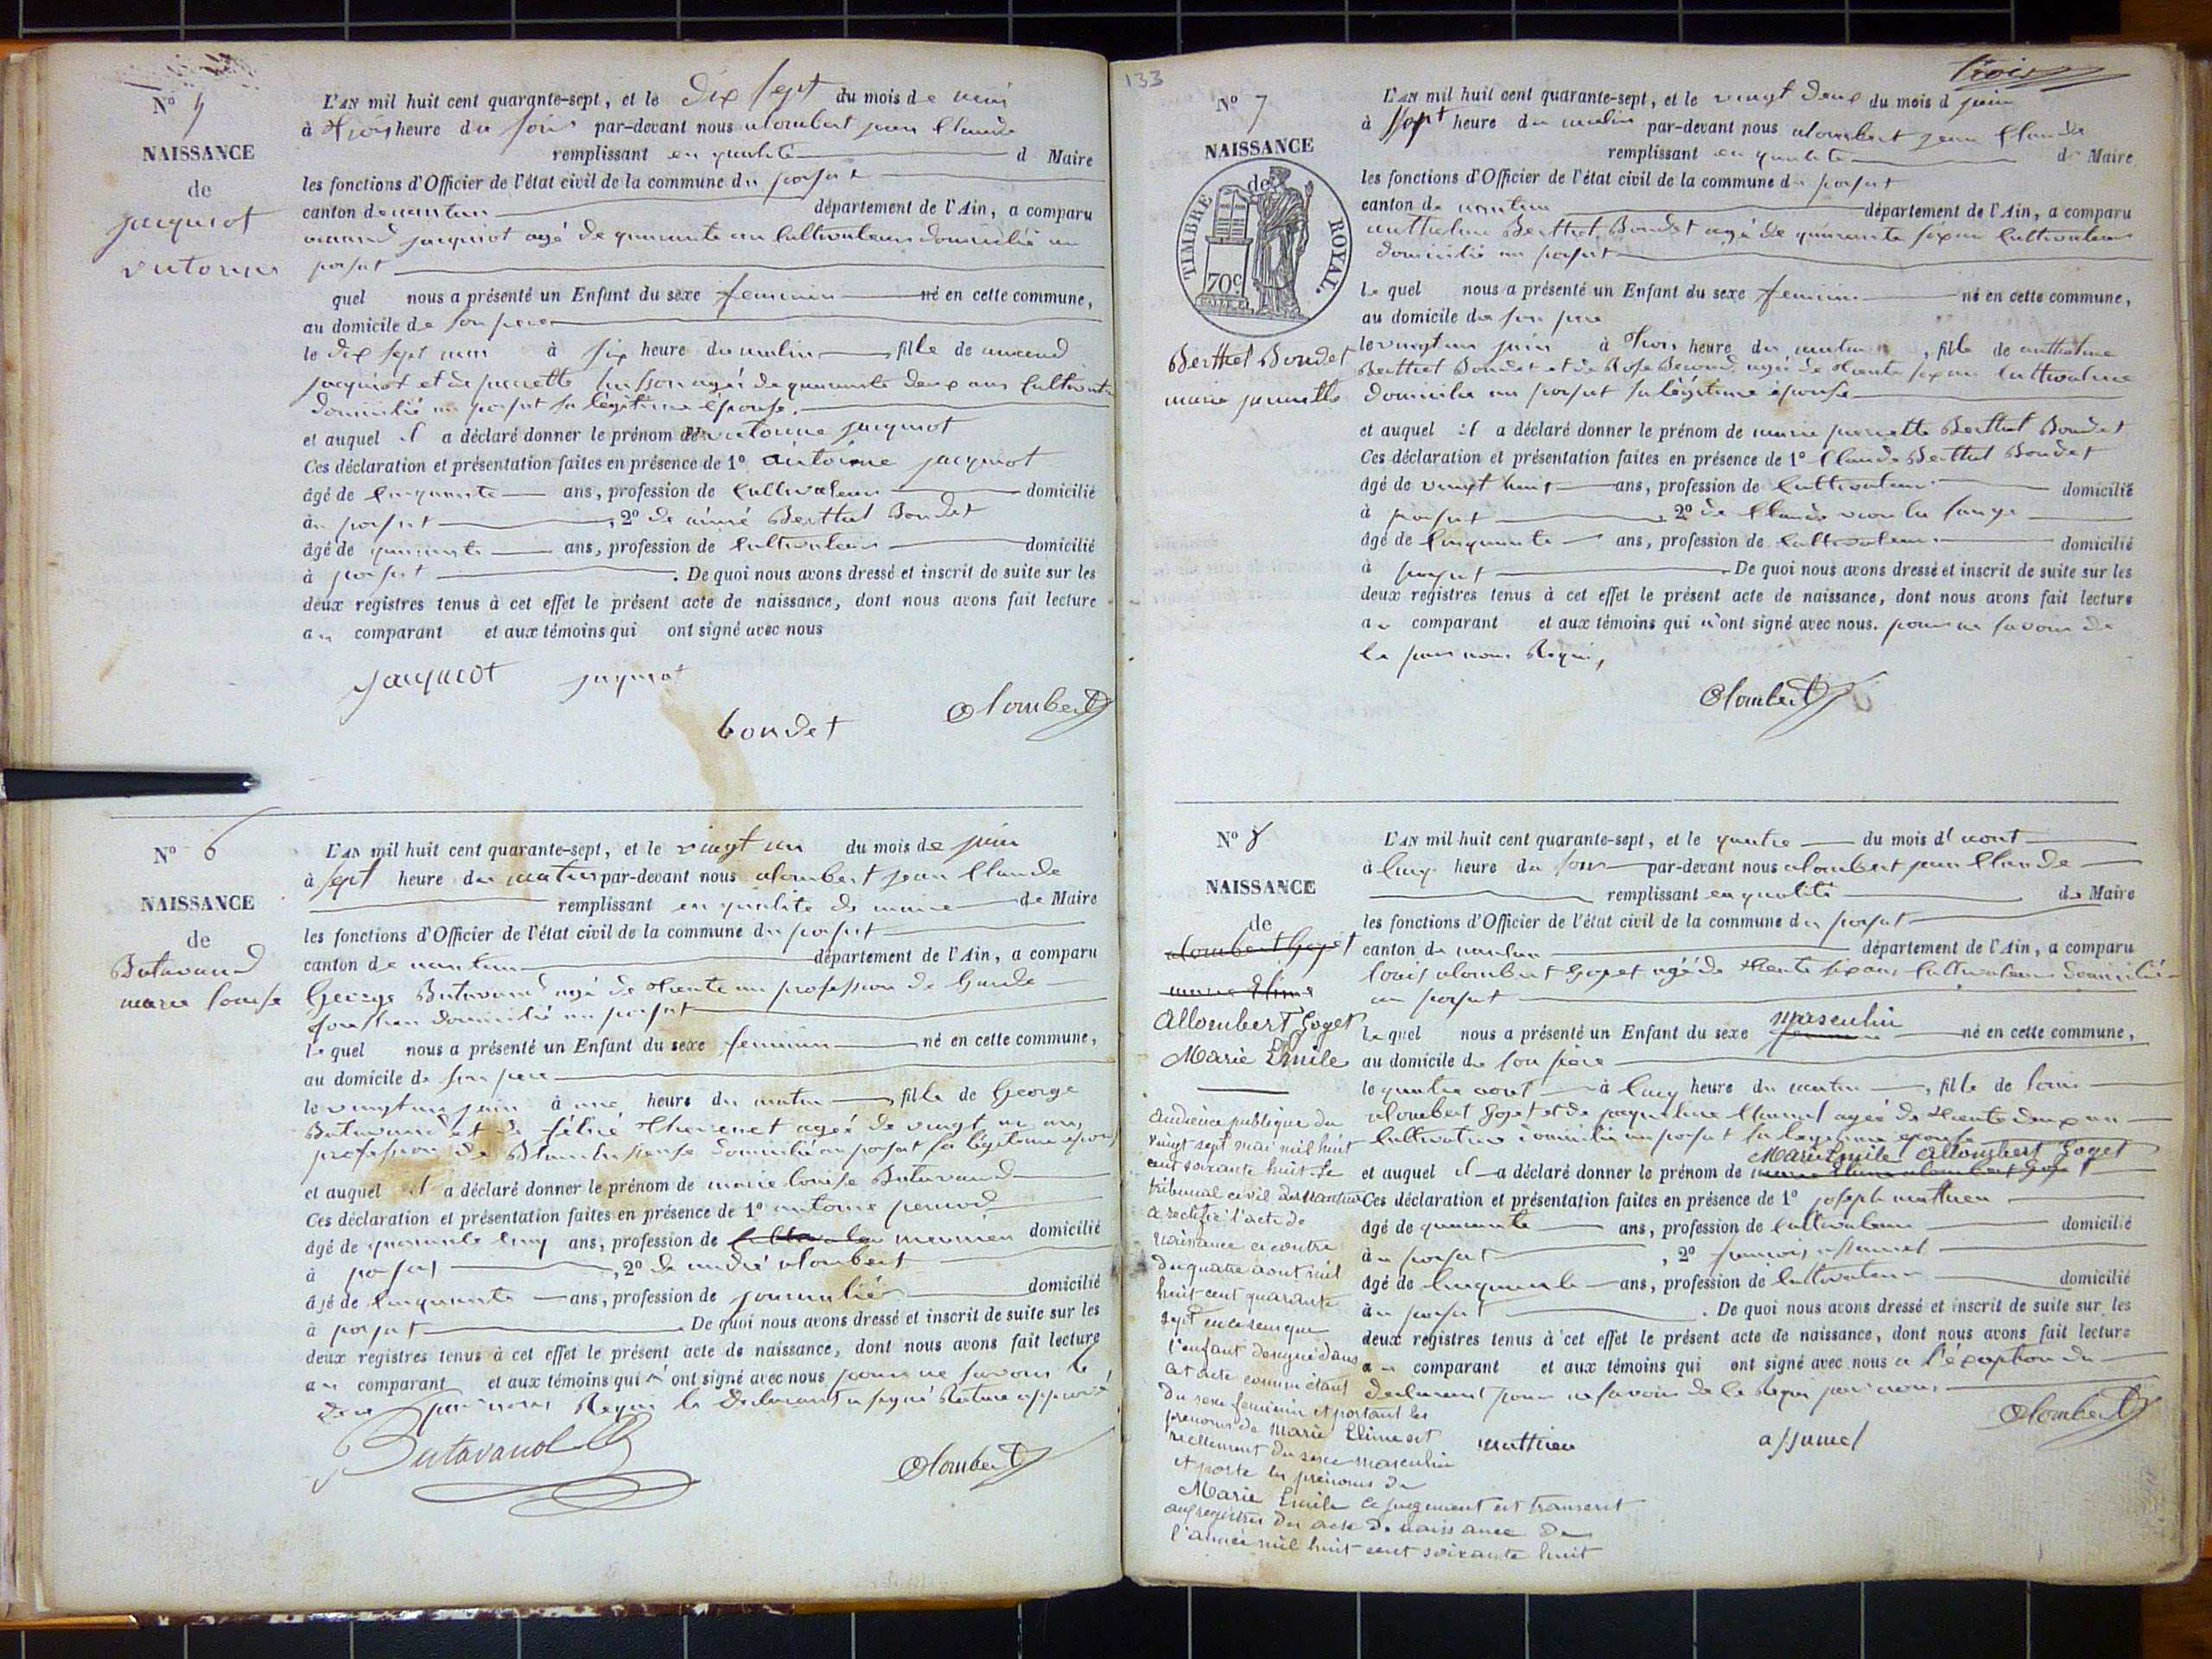 N° 5
NAISSANCE
de
jacquiot
victorine
L'AN mil huit cent quarante-sept, et le dix sept du mois de mai
à trois heure du soir par-devant nous alombert jean Claude
remplissant en qualité d Maire
les fonctions d'Officier de l'état civil de la commune du porsat
canton de nantua département de l'Ain, a comparu
jacquiot agé de quarante un Cultivateur domicilié au
porsat
quel nous a présenté un Enfant du sexe feminin né en cette commune,
au domicile de son pere
le dix sept mai à six heure du matin fille de
jacquiot et de agée de quarante deux ans Cultivatrice
domicilié au porsat sa légitime épouse.
et auquel il a déclaré donner le prénom de victorine jacquiot
Ces déclaration et présentation faites en présence de 1° antoine jacquiot
âgé de Cinquante ans, profession de Cultivateur domicilié
au porsat , 2° de aimé Berthet Bondet
âgé de quarante ans, profession de Cultivateur domicilié
à porsat . De quoi nous avons dressé et inscrit de suite sur les
deux registres tenus à cet effet le présent acte de naissance, dont nous avons fait lecture
au comparant et aux témoins qui ont signé avec nous
jacquiot jaquiot
bondet alombert
N° 6
NAISSANCE
de
Butavand
marie louise
L'AN mil huit cent quarante-sept, et le vingt un du mois de juin
à sept heure du matin par-devant nous alombert jean Claude
remplissant en qualité de maire de Maire
les fonctions d'Officier de l'état civil de la commune du porsat
canton de nantua département de l'Ain, a comparu
George Butavand agé de trente un profession de Garde
forestier domicilié au porsat
le quel nous a présenté un Enfant du sexe feminin né en cette commune,
au domicile de son pere
le vingt un juin à une heure du matin , fille de George
Butavand et de félicié thevenet agée de vingt un ans
profession de Blanchisseuse domicilié au porsat sa légitime epouse
et auquel il a déclaré donner le prénom de marie louise Butavand
Ces déclaration et présentation faites en présence de 1° antoine
âgé de quarante cinq ans, profession de cultivateur meunier domicilié
à porsat , 2° de andré alombert
âgé de Cinquante ans, profession de journalié domicilié
à porsat De quoi nous avons dressé et inscrit de suite sur les
deux registres tenus à cet effet le présent acte de naissance, dont nous avons fait lecture
au comparant et aux témoins qui n'ont signé avec nous pour ne savoir le
par nous Requi le Declarant a signé Rature approuvé
Butavand
alombert
133
trois
N° 7
NAISSANCE
de
TIMBRE ROYAL.
70c
Berthet Bondet
marie jeannette
L'AN mil huit cent quarante-sept, et le vingt deux du mois d juin
à sept heure du matin par-devant nous alombert jean Claude
remplissant en qualité de Maire
les fonctions d'Officier de l'état civil de la commune du porsat
canton de nantua département de l'Ain, a comparu
anthelme Berthet Bondet agé de quarante six an Cultivateur
domicilié au porsat
le quel nous a présenté un Enfant du sexe feminin né en cette commune,
au domicile de son pere
le vingt un juin à trois heure du matin , fille de anthelme
Berthet Bondet et de Rose agée de trente six an Cultivatrice
domicilié au porsat sa légitime épouse
et auquel il a déclaré donner le prénom de marie jeannette Berthet Bondet
Ces déclaration et présentation faites en présence de 1° Claude Berthet Bondet
âgé de vingt huit ans, profession de Cultivateur domicilié
à porsat , 2° de Claude
âgé de Cinquante ans, profession de Cultivateur domicilié
à porsat De quoi nous avons dressé et inscrit de suite sur les
deux registres tenus à cet effet le présent acte de naissance, dont nous avons fait lecture
au comparant et aux témoins qui n'ont signé avec nous. pour ne savoir de
le par nous Requi,
alombert
N° 8
NAISSANCE
de
alombert Goyet
marie Eline
Allombert Goyet
Marie Emile
Audience publique du
vingt sept mai mil huit
cent soixante huit. Le
tribunal civil de Nantua
a rectifié l'acte de
naissance ci contre
du quatre aout mil
huit cent quarante
sept en ce sens que
l'enfant désigné dans
cet acte comme étant
du sexe feminin et portant les
prénoms de Marie Eline est
reellement du sexe masculin
et porte les prénoms de
Marie Emile ce jugement est transcrit
aux registres des acte de naissance de
l'année mil huit cent soixante huit
L'AN mil huit cent quarante-sept, et le quatre du mois d'aout
à Cinq heure du soir par-devant nous alombert jean Claude
remplissant en qualité de Maire
les fonctions d'Officier de l'état civil de la commune du porsat
canton de nantua département de l'Ain, a comparu
louis alombert Goyet agé de trente six ans Cultivateur domicilié
au porsat
le quel nous a présenté un Enfant du sexe masculin né en cette commune,
au domicile de son père
le quatre aout à Cinq heure du matin , fille de louis
alombert Goyet et de jacqueline agée de trente deux an
Cultivatrice domicilié au porsat sa légitime épouse
et auquel il a déclaré donner le prénom de Marie Emile Allombert Goyet
Ces déclaration et présentation faites en présence de 1° joseph mathieu
âgé de quarante ans, profession de Cultivateur domicilié
au porsat , 2° francois assumel
âgé de Cinquante ans, profession de Cultivateur domicilié
au porsat . De quoi nous avons dressé et inscrit de suite sur les
deux registres tenus à cet effet le présent acte de naissance, dont nous avons fait lecture
au comparant et aux témoins qui ont signé avec nous a l'exception du
declarant pour ne savoir de le Requi par nous
mathieu assumel alombert